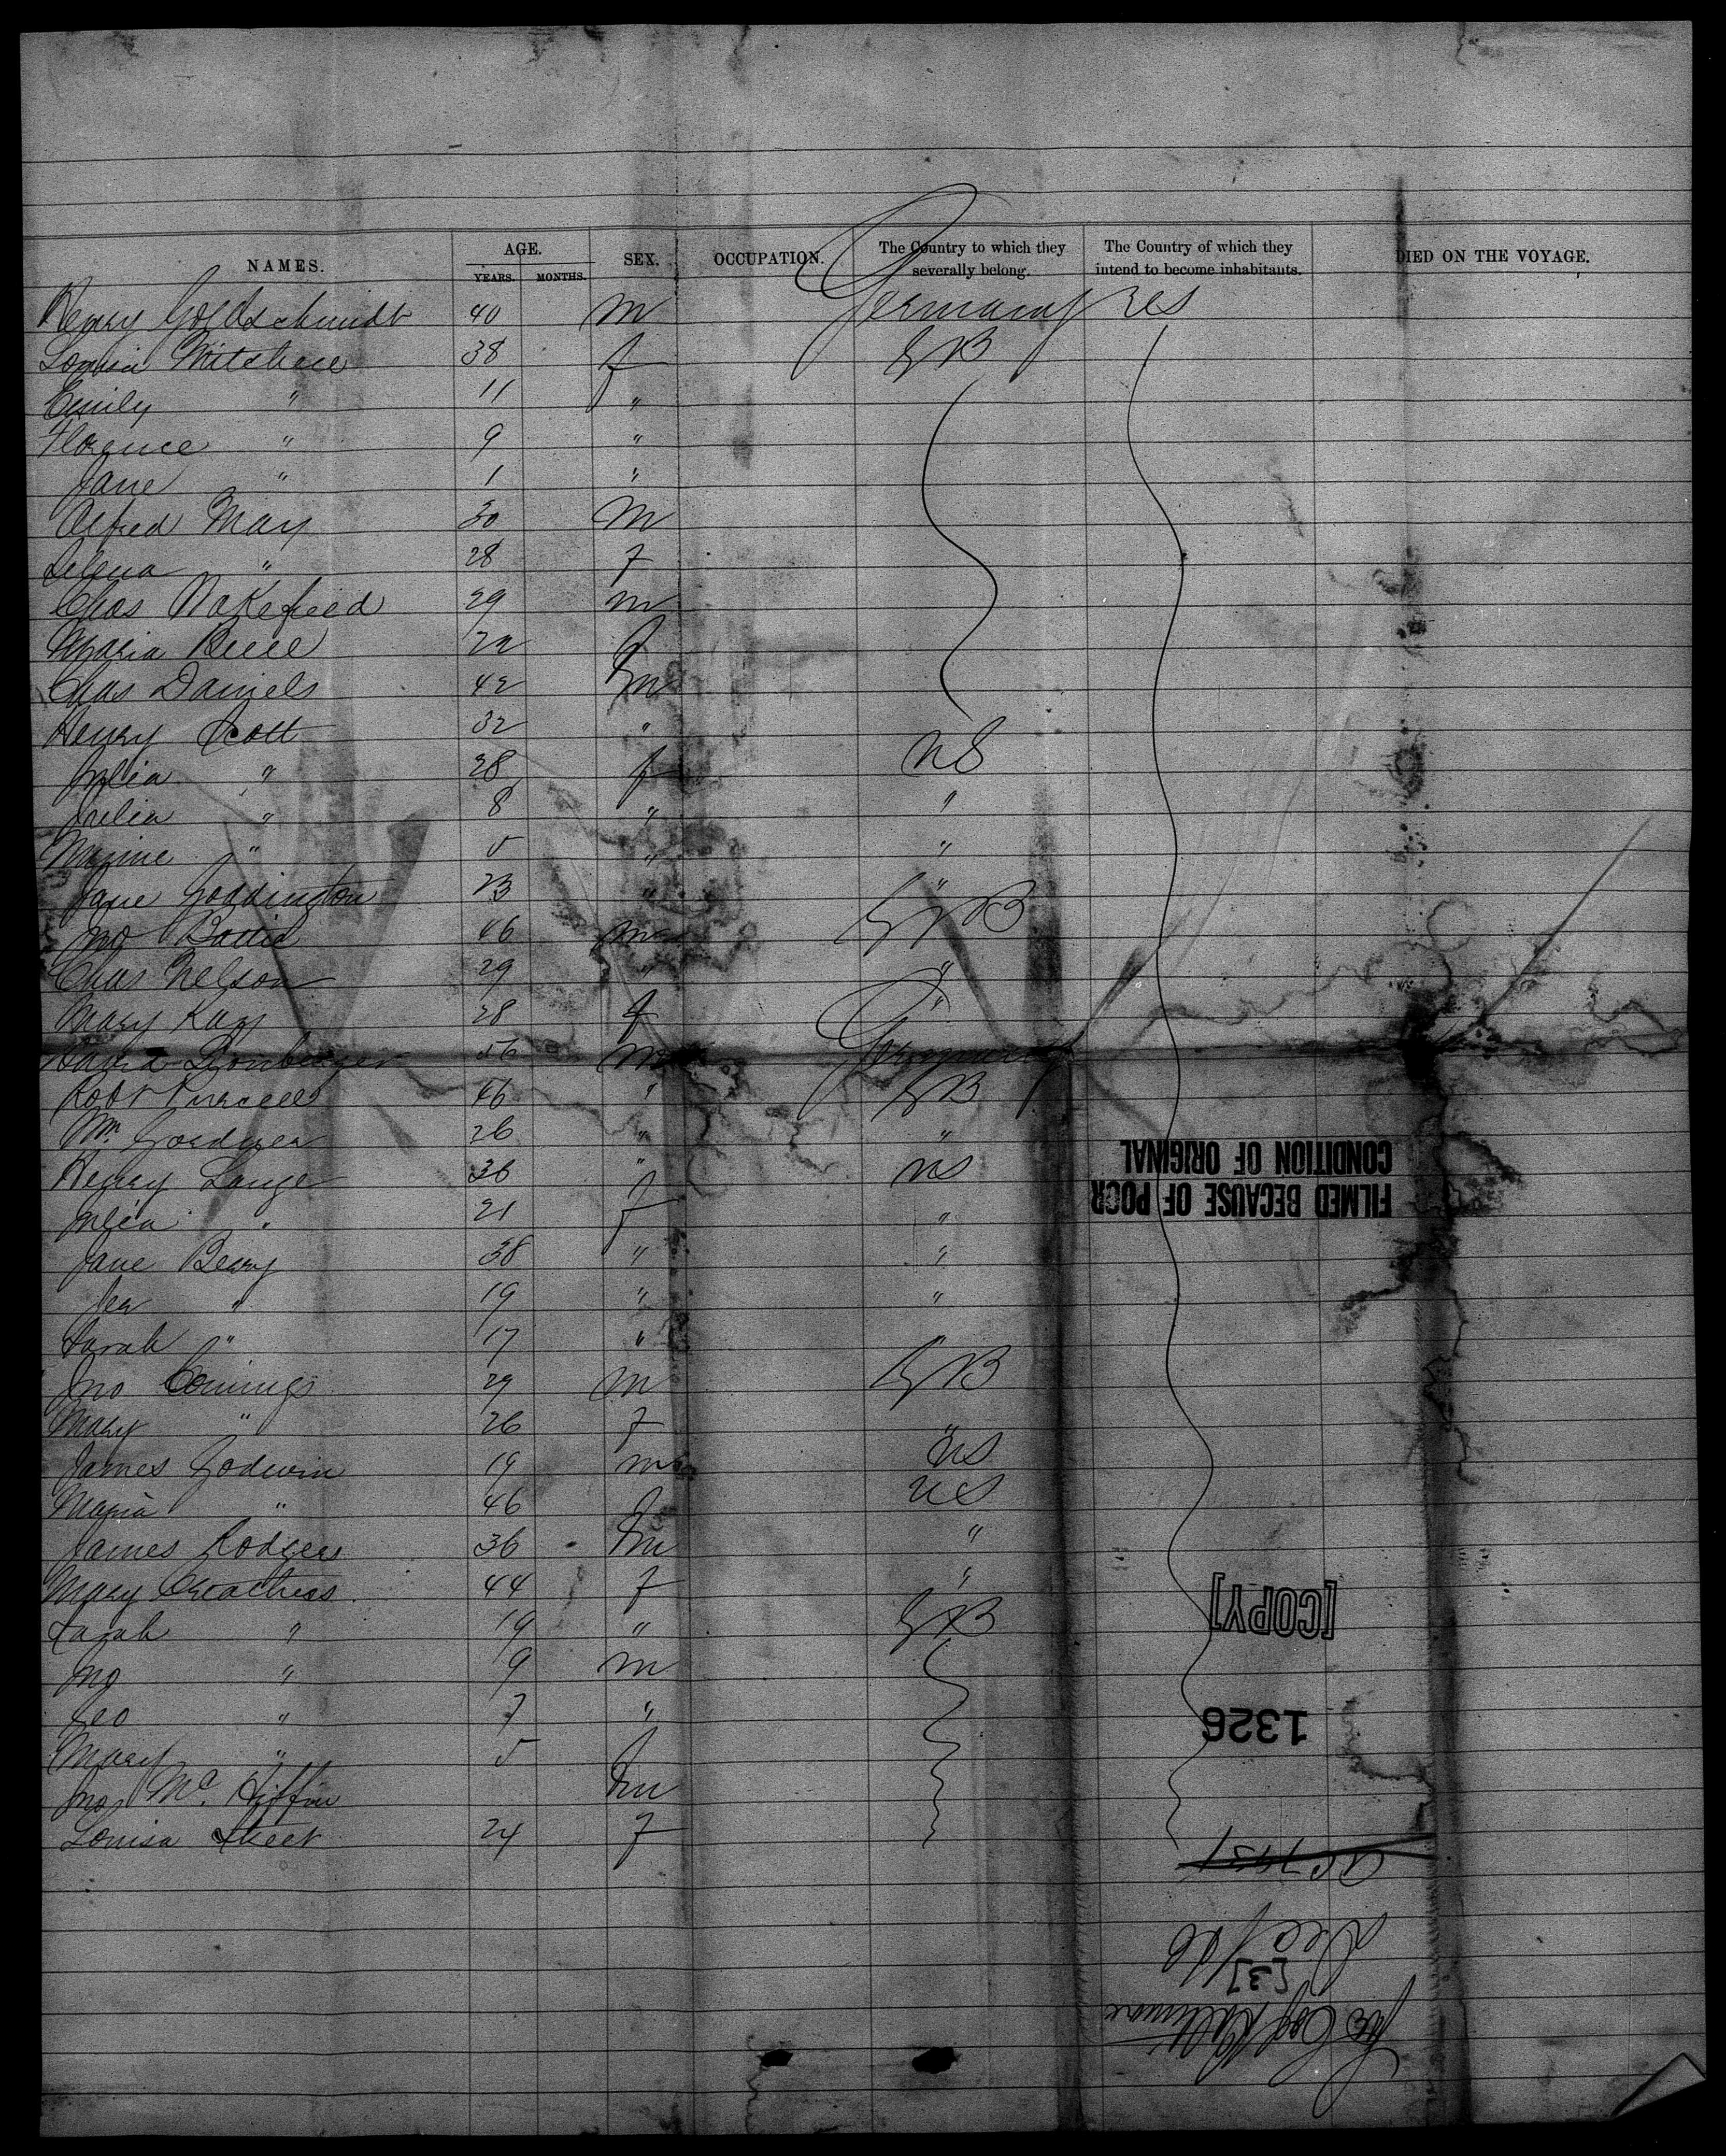 NAMES. AGE. YEARS. MONTHS. SEX. OCCUPATION. The Country to which they severally belong. The Country of which they intend to become inhabitants. DIED ON THE VOYAGE.
Henry Goldschmidt 40 m Germany US
Louisa Mitchell 38 f GB
Emily " 11 "
Florence " 9 "
Jane " 1 "
Alfred May 30 m
Selena " 28 f
Chas Wakefield 29 m
Maria 22 f
Chas Daniels 42 m
Henry Scott 32 "
Julia " 28 f US
Julia " 8 " "
Minnie " 5 " "
Jane Goddington 23 " "
Jno 46 m GB
Chas Nelson 29 " "
Mary Kay 28 f "
56 m Germany
Robt 46 " GB
Wm 26 " "
Henry Lange 36 " US
Julia " 21 f "
Jane Berry 38 " "
" 19 " "
Sarah " 17 " "
Jno 29 m GB
Mary " 26 f "
James Godwin 19 m US
Maria " 46 f US
James Rodgers 36 m "
Mary 44 f "
Sarah " 19 " GB
Jno " 9 m
Geo " 7 "
Mary " 5 f
Jno Mc. m
Louisa 24 f
FILMED BECAUSE OF POOR
CONDITION OF ORIGINAL
[COPY]
1326
[3]